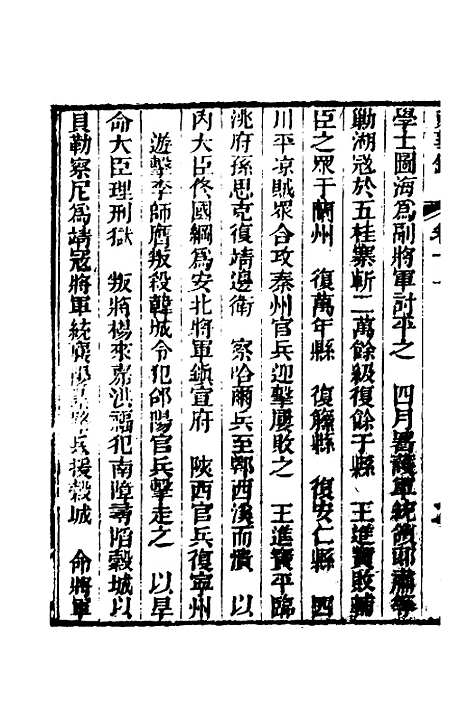 學士圖海爲副將軍討平之　四月署護軍統領郎肅等
勦湖寇於五桂寨斬二萬餘級復餘于縣　王進寶敗輔
臣之眾于蘭州　復萬年縣　復縣縣　復安仁縣　四
川平凉賊眾合攻秦州官兵迎擊屢敗之　王進寶平臨
洮府孫思克復靖邊衛　察哈爾兵至鄂西溪而潰　以
內大臣佟國綱爲安北將軍鎮宣府　陝西官兵復寧州
遊擊李師膺叛殺韓城令犯郃陽官兵擊走之　以旱
命大臣理刑獄　叛將楊來嘉洪福犯南障尋陷榖城以
貝勒察尼爲靖寇將軍統兵援榖城　命將軍